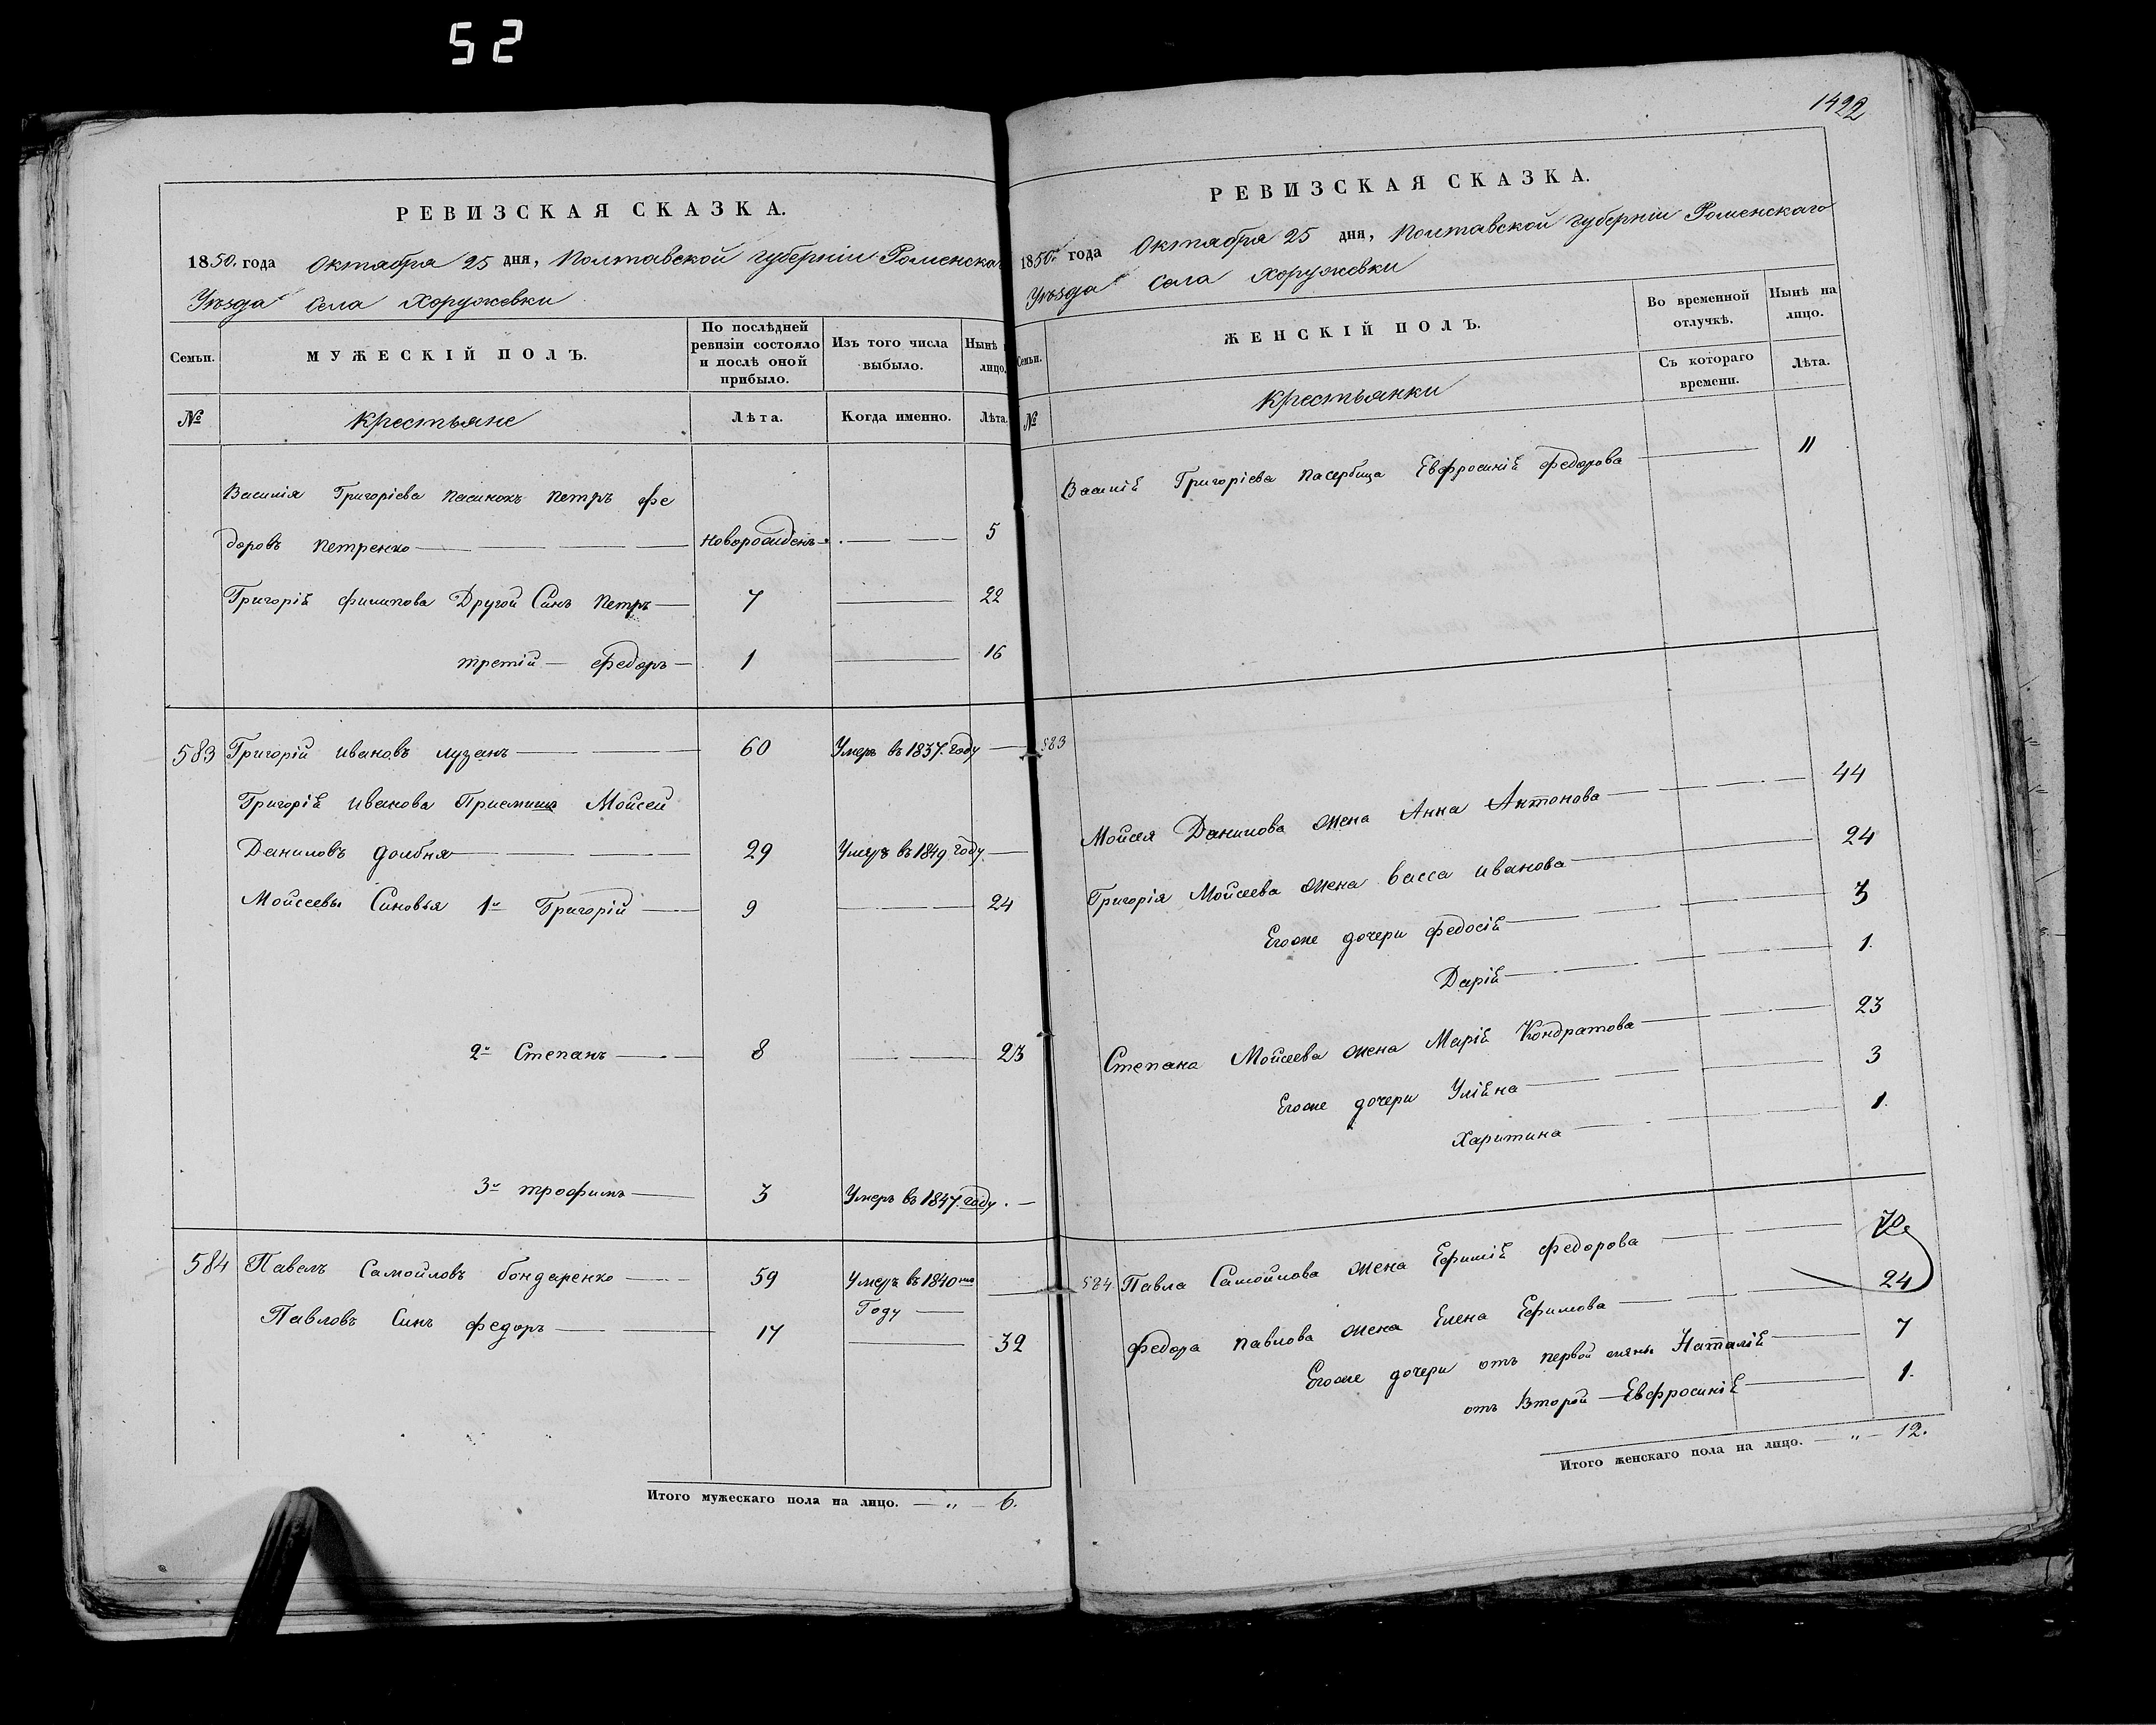 52
РЕВИЗСКАЯ СКАЗКА.
1850. года Октября 25 дня, Полтавской губерніи Роменска
Уѣзда Села Хоружевки
Семьи.
МУЖЕСКІЙ ПОЛЪ.
По послѣдней ревизіи состояло и послѣ оной прибыло.
Изъ того числа выбыло.
Нынѣ лицо.
№
Крестьяне
Лѣта.
Когда именно.
Лѣта.
Василія Григоріева пасинокъ Петръ Фе
доровъ Петренко — новорожденъ — 5
Григоріѣ Филипова Другой Синъ Петръ — 7 — 22
третій — Федоръ — 1 — 16
583 Григорій Ивановъ лузанъ — 60 Умеръ въ 1837. году —
Григоріѣ Иванова Приемишъ Мойсей
Даниловъ долбня — 29 Умеръ въ 1849 году. —
Мойсеевы Синовья 1й Григорій — 9 — 24
2й Степанъ — 8 — 23
3й трофимъ — 3 Умеръ въ 1847. году. —
584 Павелъ Самойловъ бондаренко — 59 Умеръ въ 1840мъ
Году —
Павловъ Синъ федоръ — 17 — 32
Итого мужескаго пола на лицо. — „ — 6.
1422
РЕВИЗСКАЯ СКАЗКА.
1850го года Октября 25 дня, Полтавской губерніи Роменскаго
Уѣзда Села Хоружевки
Семьи.
ЖЕНСКІЙ ПОЛЪ.
Во временной отлучкѣ.
Нынѣ на лицо.
Съ котораго времени.
Лѣта.
№
Крестьянки
Василіѣ Григоріева пасербица Евфросиніѣ Федорова — 11
583
Мойсея Данилова жена Анна Антонова — 44
Григорія Мойсеева жена Васса Иванова — 24
Егоже дочери Федосіѣ — 3
Даріѣ — 1.
Степана Мойсеева жена Маріѣ Кондратова — 23
Егоже дочери Уліѣна — 3
Харитина — 1.
584 Павла Самойлова жена Ефиміѣ Федорова — 70
Федора Павлова жена Елена Ефимова — 24
Егоже дочери отъ первой жены Наталіѣ — 7
отъ Второй — Евфросиніѣ — 1.
Итого женскаго пола на лицо. — „ — 12.